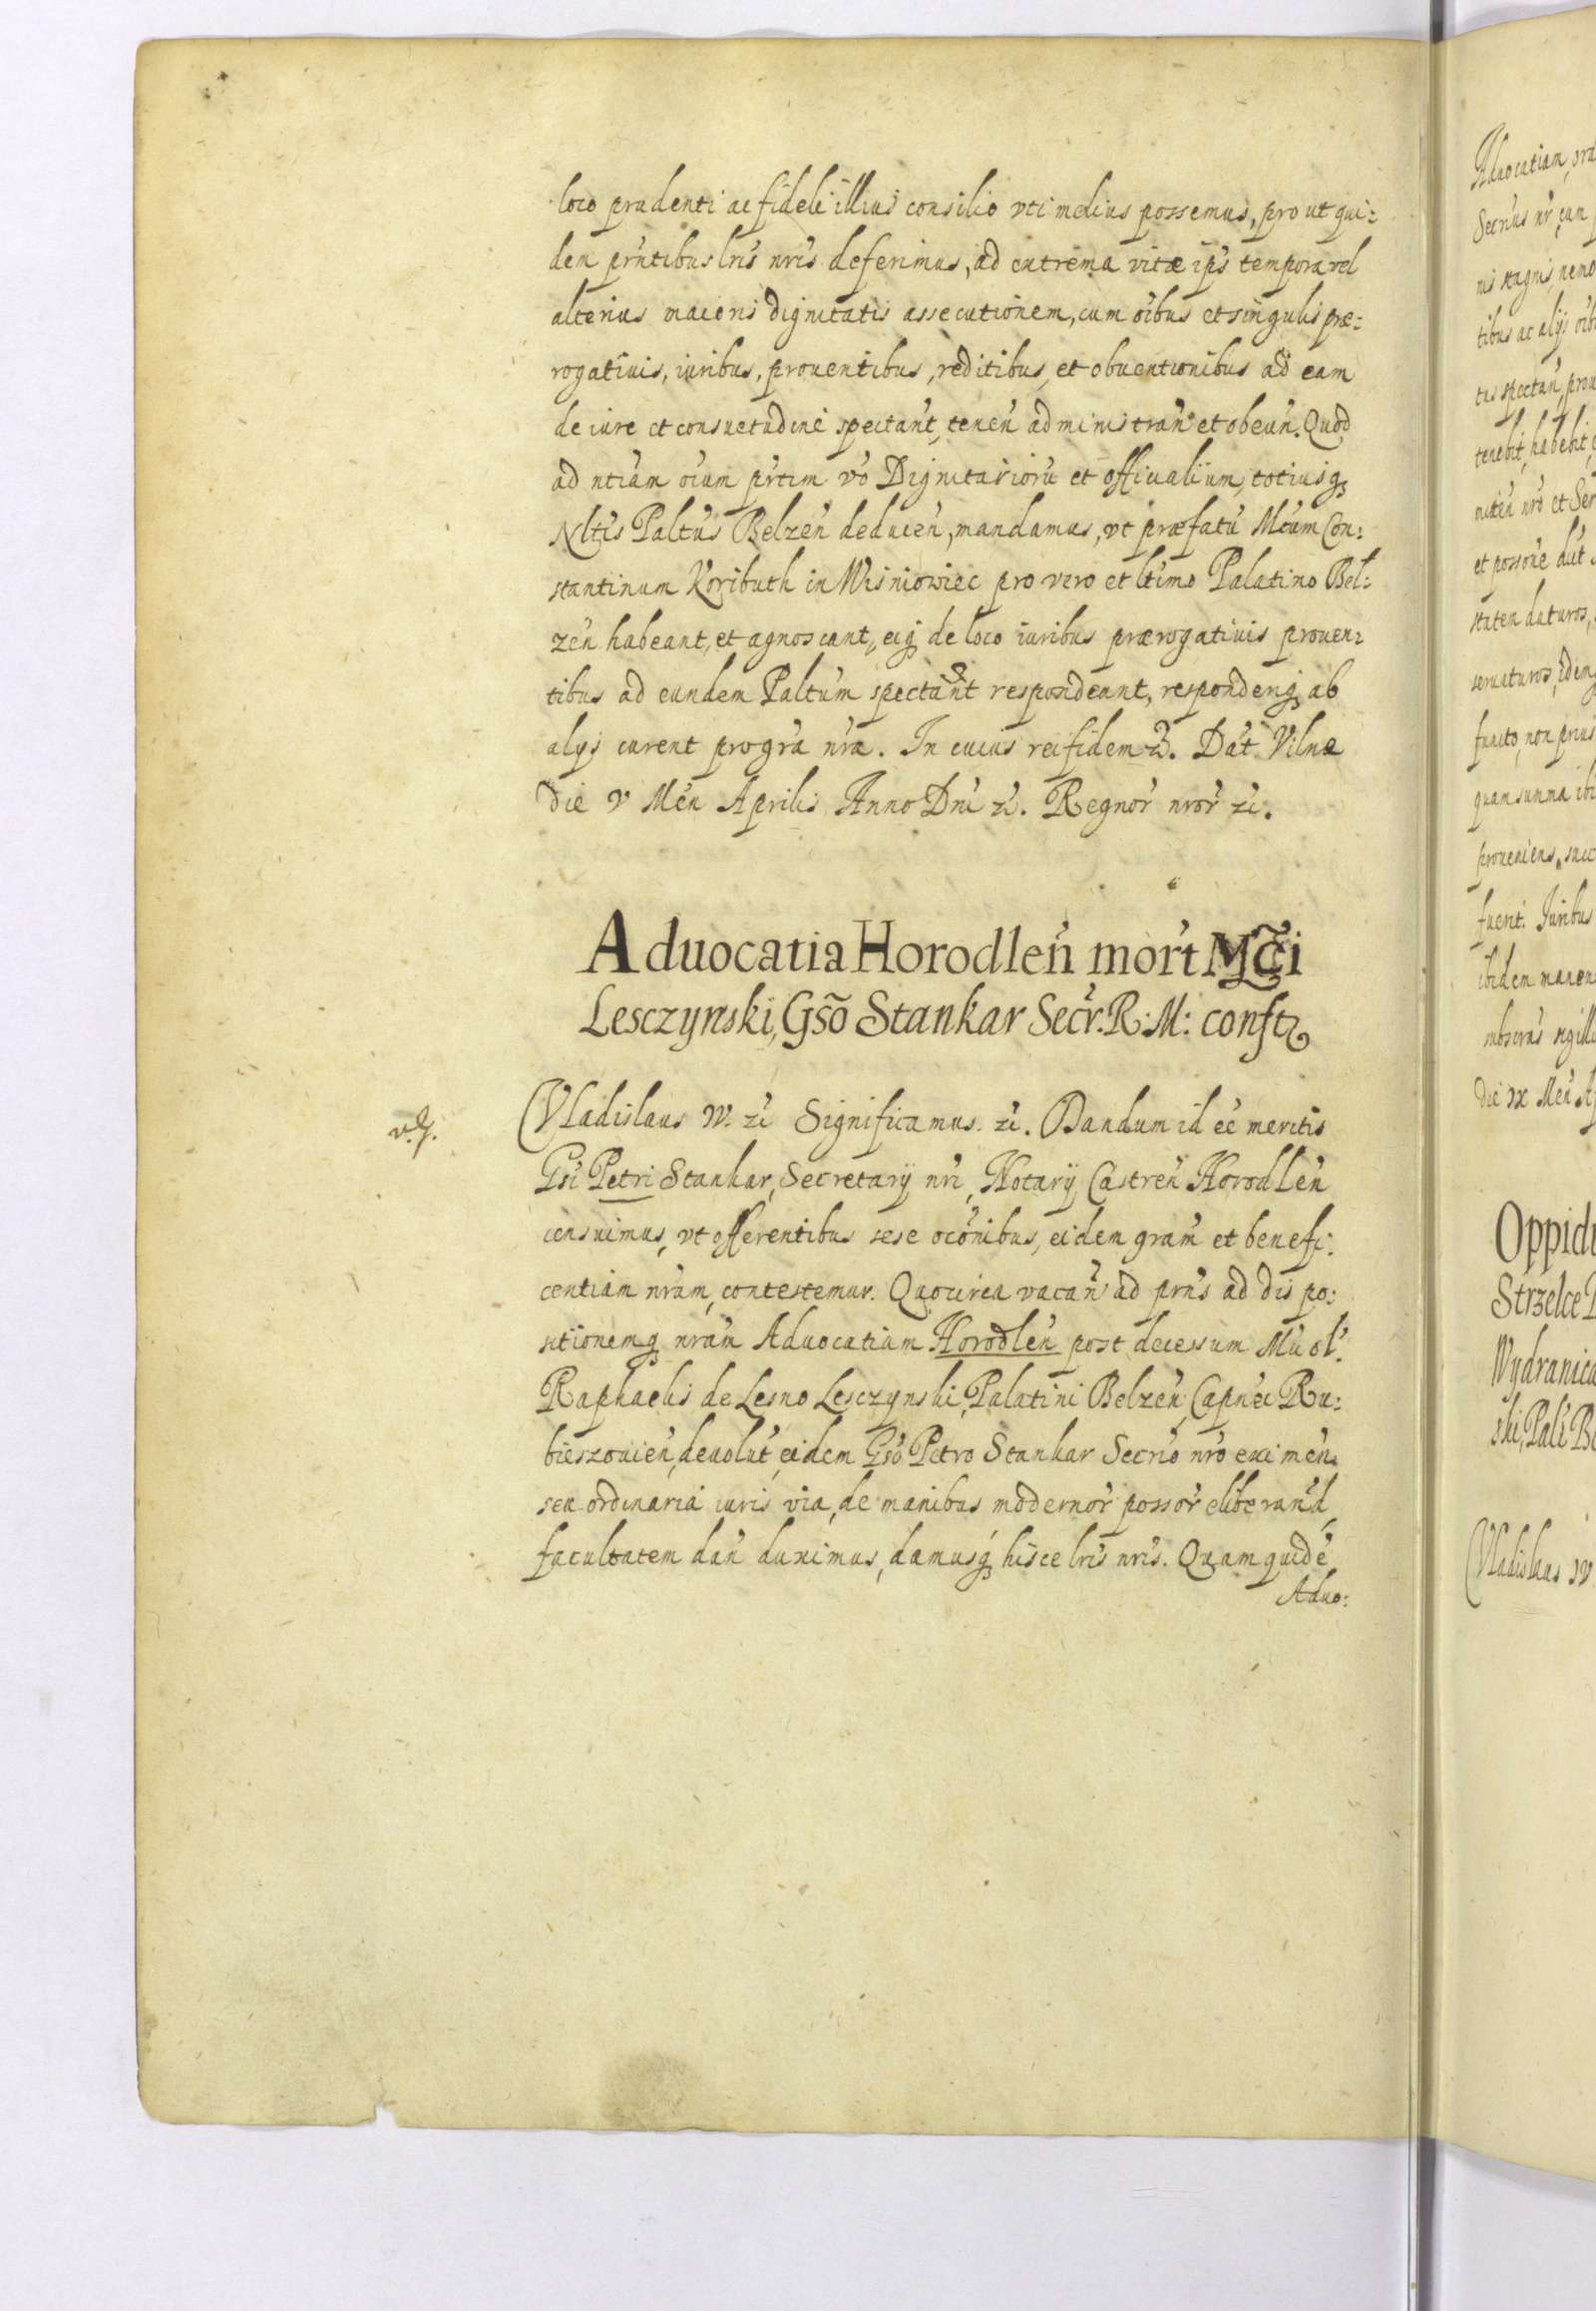 loco prudenti ac fideli illius consilio vti melius possemus, pro ut qui:
dem prñtibus lris nris deferimus, ad extrema vitæ ips tempora vel
alterius maioris dignitatis assecutionem, cum oibus et singulis præ:
rogatiuis, iuribus, prouentibus, reditibus, et obuentionibus ad eam
de iure et consuetudine spectant, tenen administran et obeun. Quod
ad ntiam oium prtim vo Dignitarioru et officialium, totiusq
Nltis Paltus Belzen deducen, mandamus, vt præfatu Mcum Con:
stantinum Koributh in Wisniowiec pro vero et ltimo Palatino Bel:
zen habeant, et agnoscant, eiq de loco iuribus prærogatiuis prouen:
tibus ad eundem Paltum spectant respondeant, responderiq ab
alijs curent pro gra nra. In cuius rei fidem z. Dat Vilnæ
die V Men Aprilis Anno Dni zc. Regnor nror zc.
Aduocatia Horodlen mort Mci
Lesczynski, Gso Stankar Secr. R. M: confr
v.g.
Vladislaus IV. zc Significamus. zc. Dandum id ee meritis
Gsi Petri Stankar, Secretarij nri, Notarij Castren Horodlen
censuimus, vt offerentibus sese oconibus, eidem gram et benefi:
centiam nram, contestemur. Quocirca vacan ad prns ad dispo:
sitionemq nram Aduocatiam Horodlen post decessum M ol.
Raphaelis de Lesno Lesczynski, Palatini Belzen, Capnei Ru:
bieszouien, deuolut, eidem Gso Petro Stankar Secrio nro eximen.
seu ordinaria iuris via, de manibus modernor possor eliberand,
facultatem dan duximus, damusq hisce lris nris. Quam quide
Aduo:
Aduocatiam, ord
Secrius nr, cum
nis stagnis, nemo
tibus ac alijs oib
tus spectan, prou
tenebit, habebit,
et possore dut
statem daturos,
seruaturos, idemq
functo, non prius
quam summa ibi
proueniens, succ
fuerit. Iuribus
ibidem manen
subscrus sigillo
die IX Men Ap
Oppidu
Strzelce
Wydranica
ski, Pali Be
Vladislaus IV